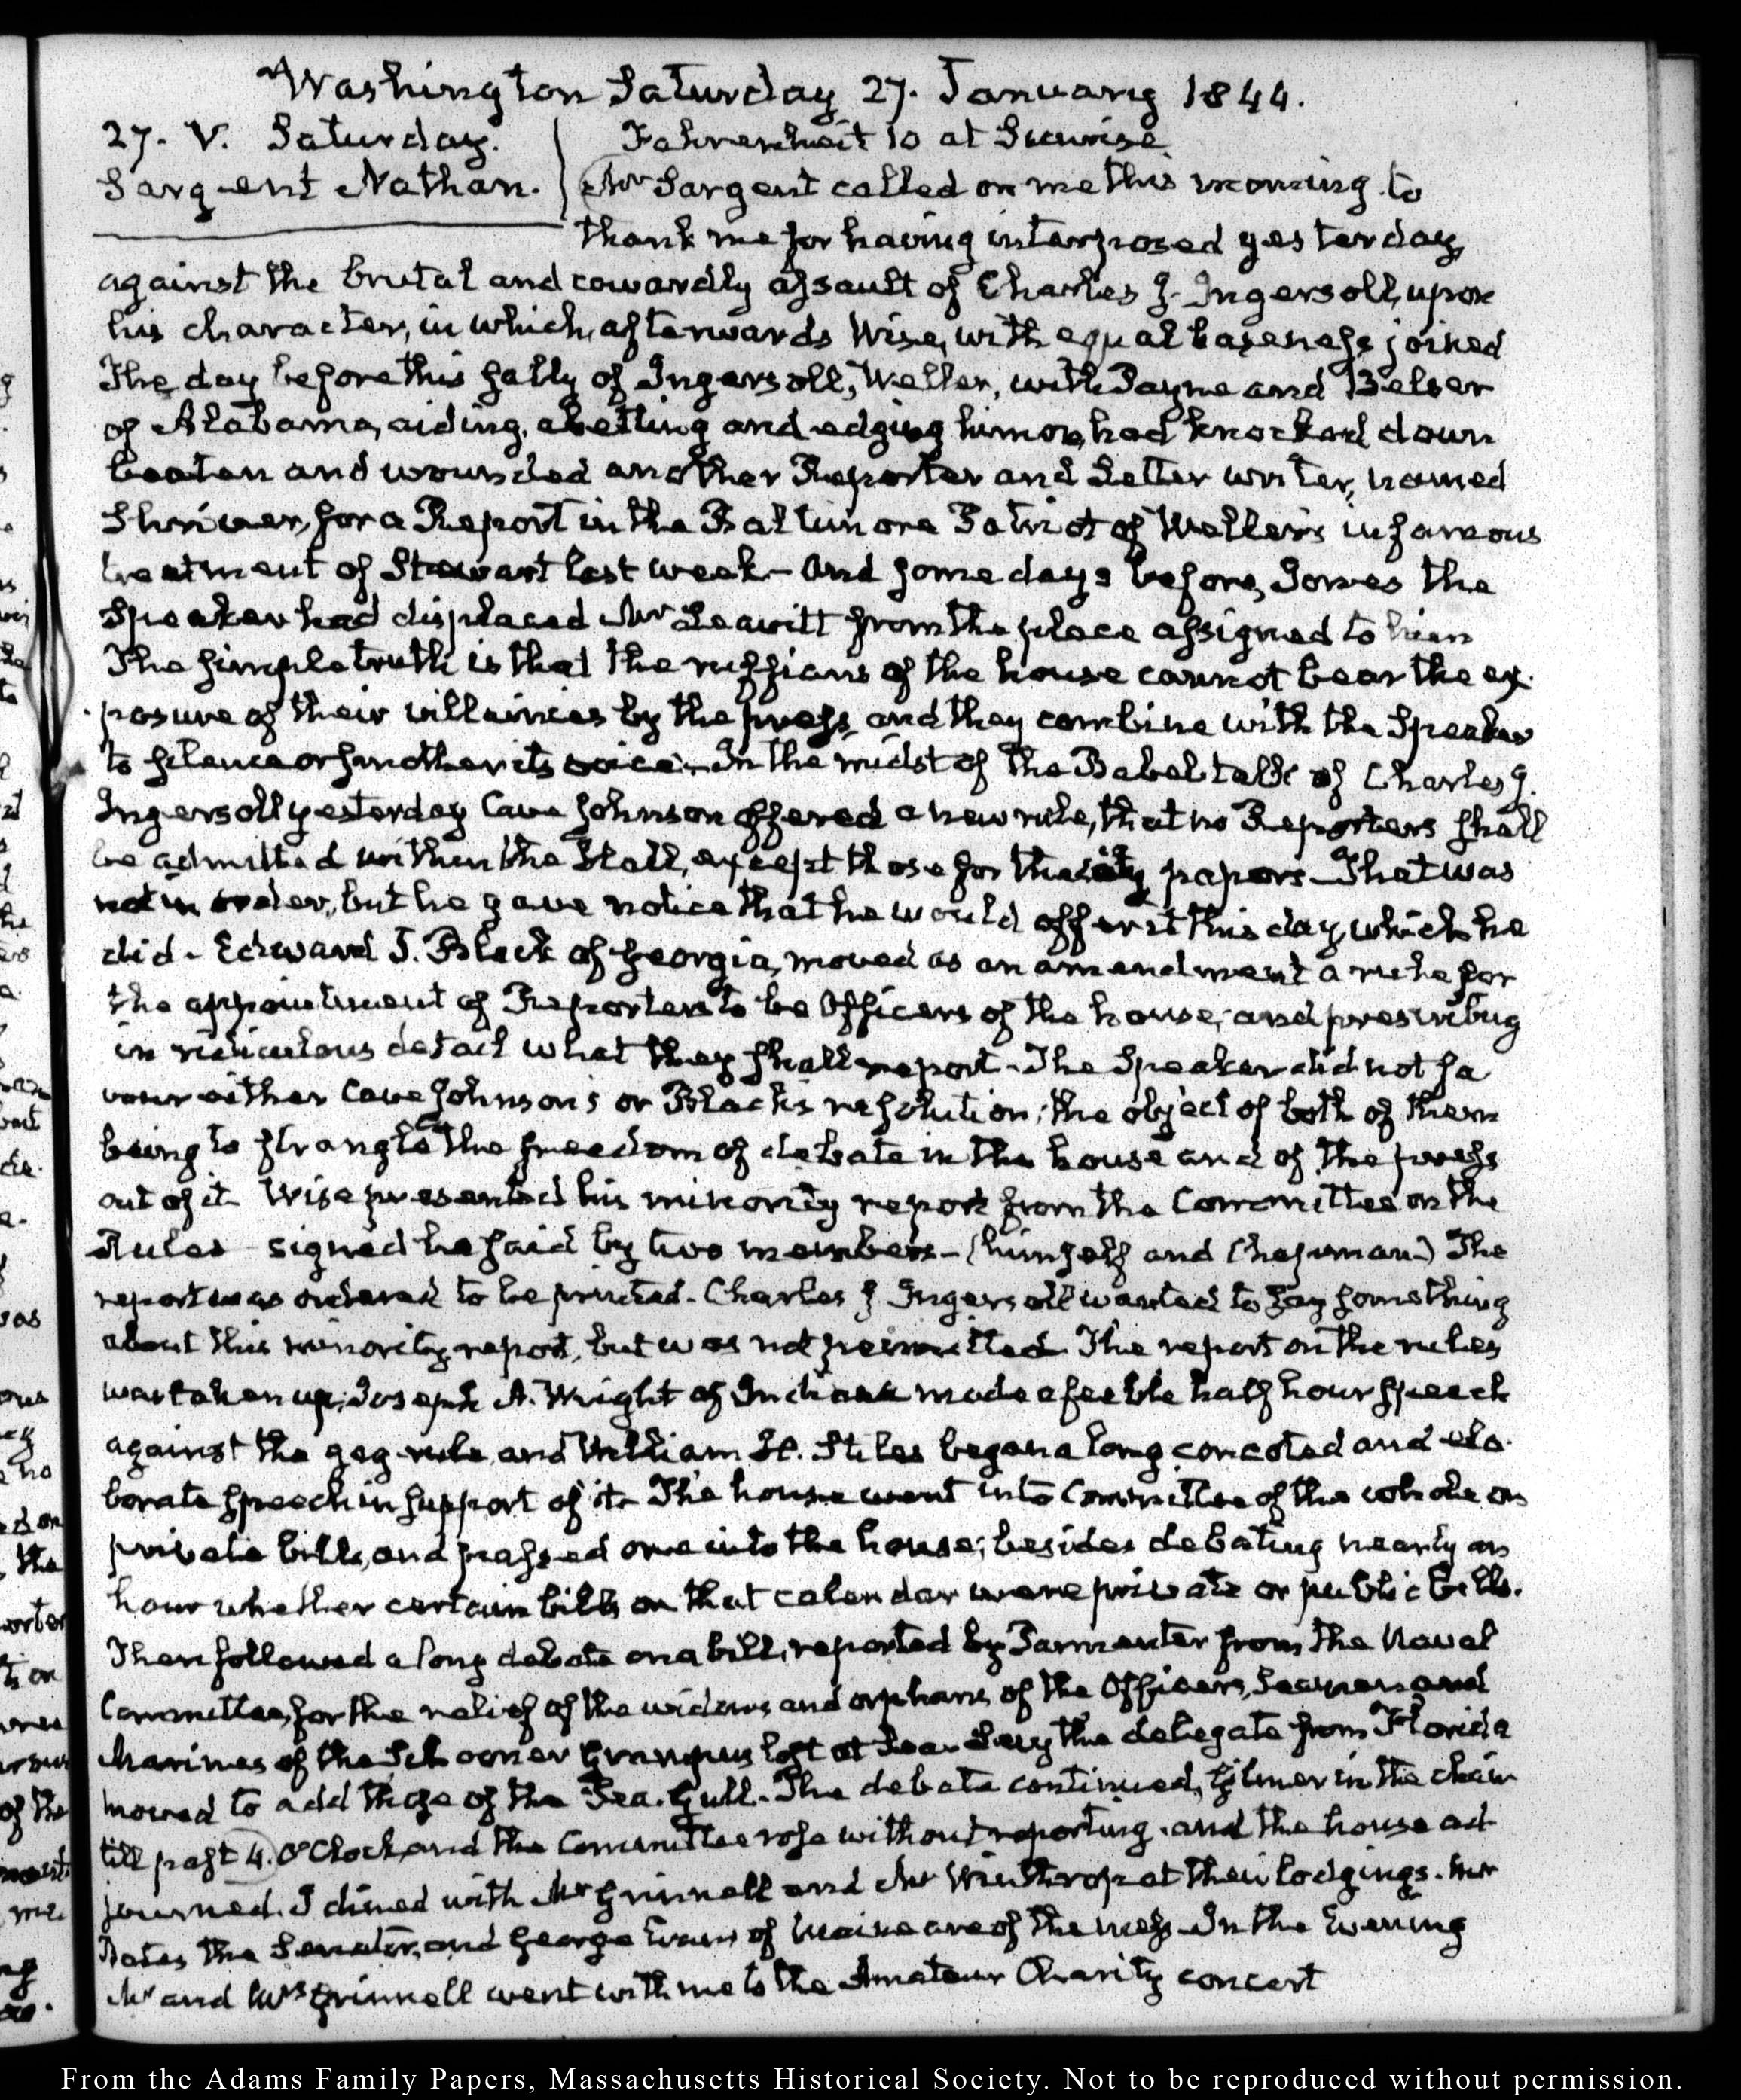 Washington Saturday 27. January 1844.
27. V. Saturday.
Sargent Nathan.
Fahrenheit 10 at Sunrise.
Mr Sargent called on me this morning to
thank me for having interposed yesterday
against the brutal and cowardly assault of Charles J. Ingersoll, upon
his character, in which, afterwards Wise, with equal baseness joined
The day before this sally of Ingersoll, Weller, with Payne and Belser
of Alabama, aiding, abetting and edging him on, had knocked down
beaten and wounded another Reporter and Letter writer, named
Shriver, for a Report in the Baltimore Patriot of Weller's infamous
treatment of Stewart last week - And some days before, Jones the
Speaker had displaced Mr Leavitt from the place assigned to him
The simple truth is that the ruffians of the house cannot bear the ex-
posure of their villainies by the press, and they combine with the Speaker
to silence or smother its voice. In the midst of the Babel talk of Charles J.
Ingersoll yesterday Cave Johnson offered a new rule, that no Reporters shall
be admitted within the Hall, except those for the city papers - That was
not in order, but he gave notice that he would offer it this day, which he
did - Edward J. Black of Georgia, moved as an amendment a rule for
the appointment of Reporters to be Officers of the house, and prescribing
in ridiculous detail what they shall report - The Speaker did not fa
vour either Cave Johnson's or Black's resolution; the object of both of them
being to strangle the freedom of debate in the house and of the press
out of it. Wise presented his minority report from the Committee on the
Rules - signed he said by two members - (himself and Chapman) The
report was ordered to be printed - Charles J. Ingersoll wanted to say something
about this minority report, but was not permitted. The report on the rules
was taken up; Joseph A. Wright of Indiana made a feeble half hour speech
against the gag-rule, and William H. Stiles began a long concocted and ela-
borate speech in support of it - The house went into Committee of the whole on
private bills, and passed one into the house; besides debating nearly an
hour whether certain bills on that calendar were private or public bills.
Then followed a long debate on a bill, reported by Parmenter from the Naval
Committee, for the relief of the widows and orphans of the Officers, Seamen and
Marines of the Schooner Grampus lost at Sea - Levy the delegate from Florida
moved to add those of the Sea-Gull - The debate continued, Gilmer in the chair
till past 4. O'Clock and the Committee rose without reporting - and the house ad-
journed. I dined with Mr Grinnell and Mr Winthrop at their lodgings. Mr
Bates the Senator, and George Evans of Maine are of the mess - In the Evening
Mr and Mrs Grinnell went with me to the Amateur Charity concert
From the Adams Family Papers, Massachusetts Historical Society. Not to be reproduced without permission.